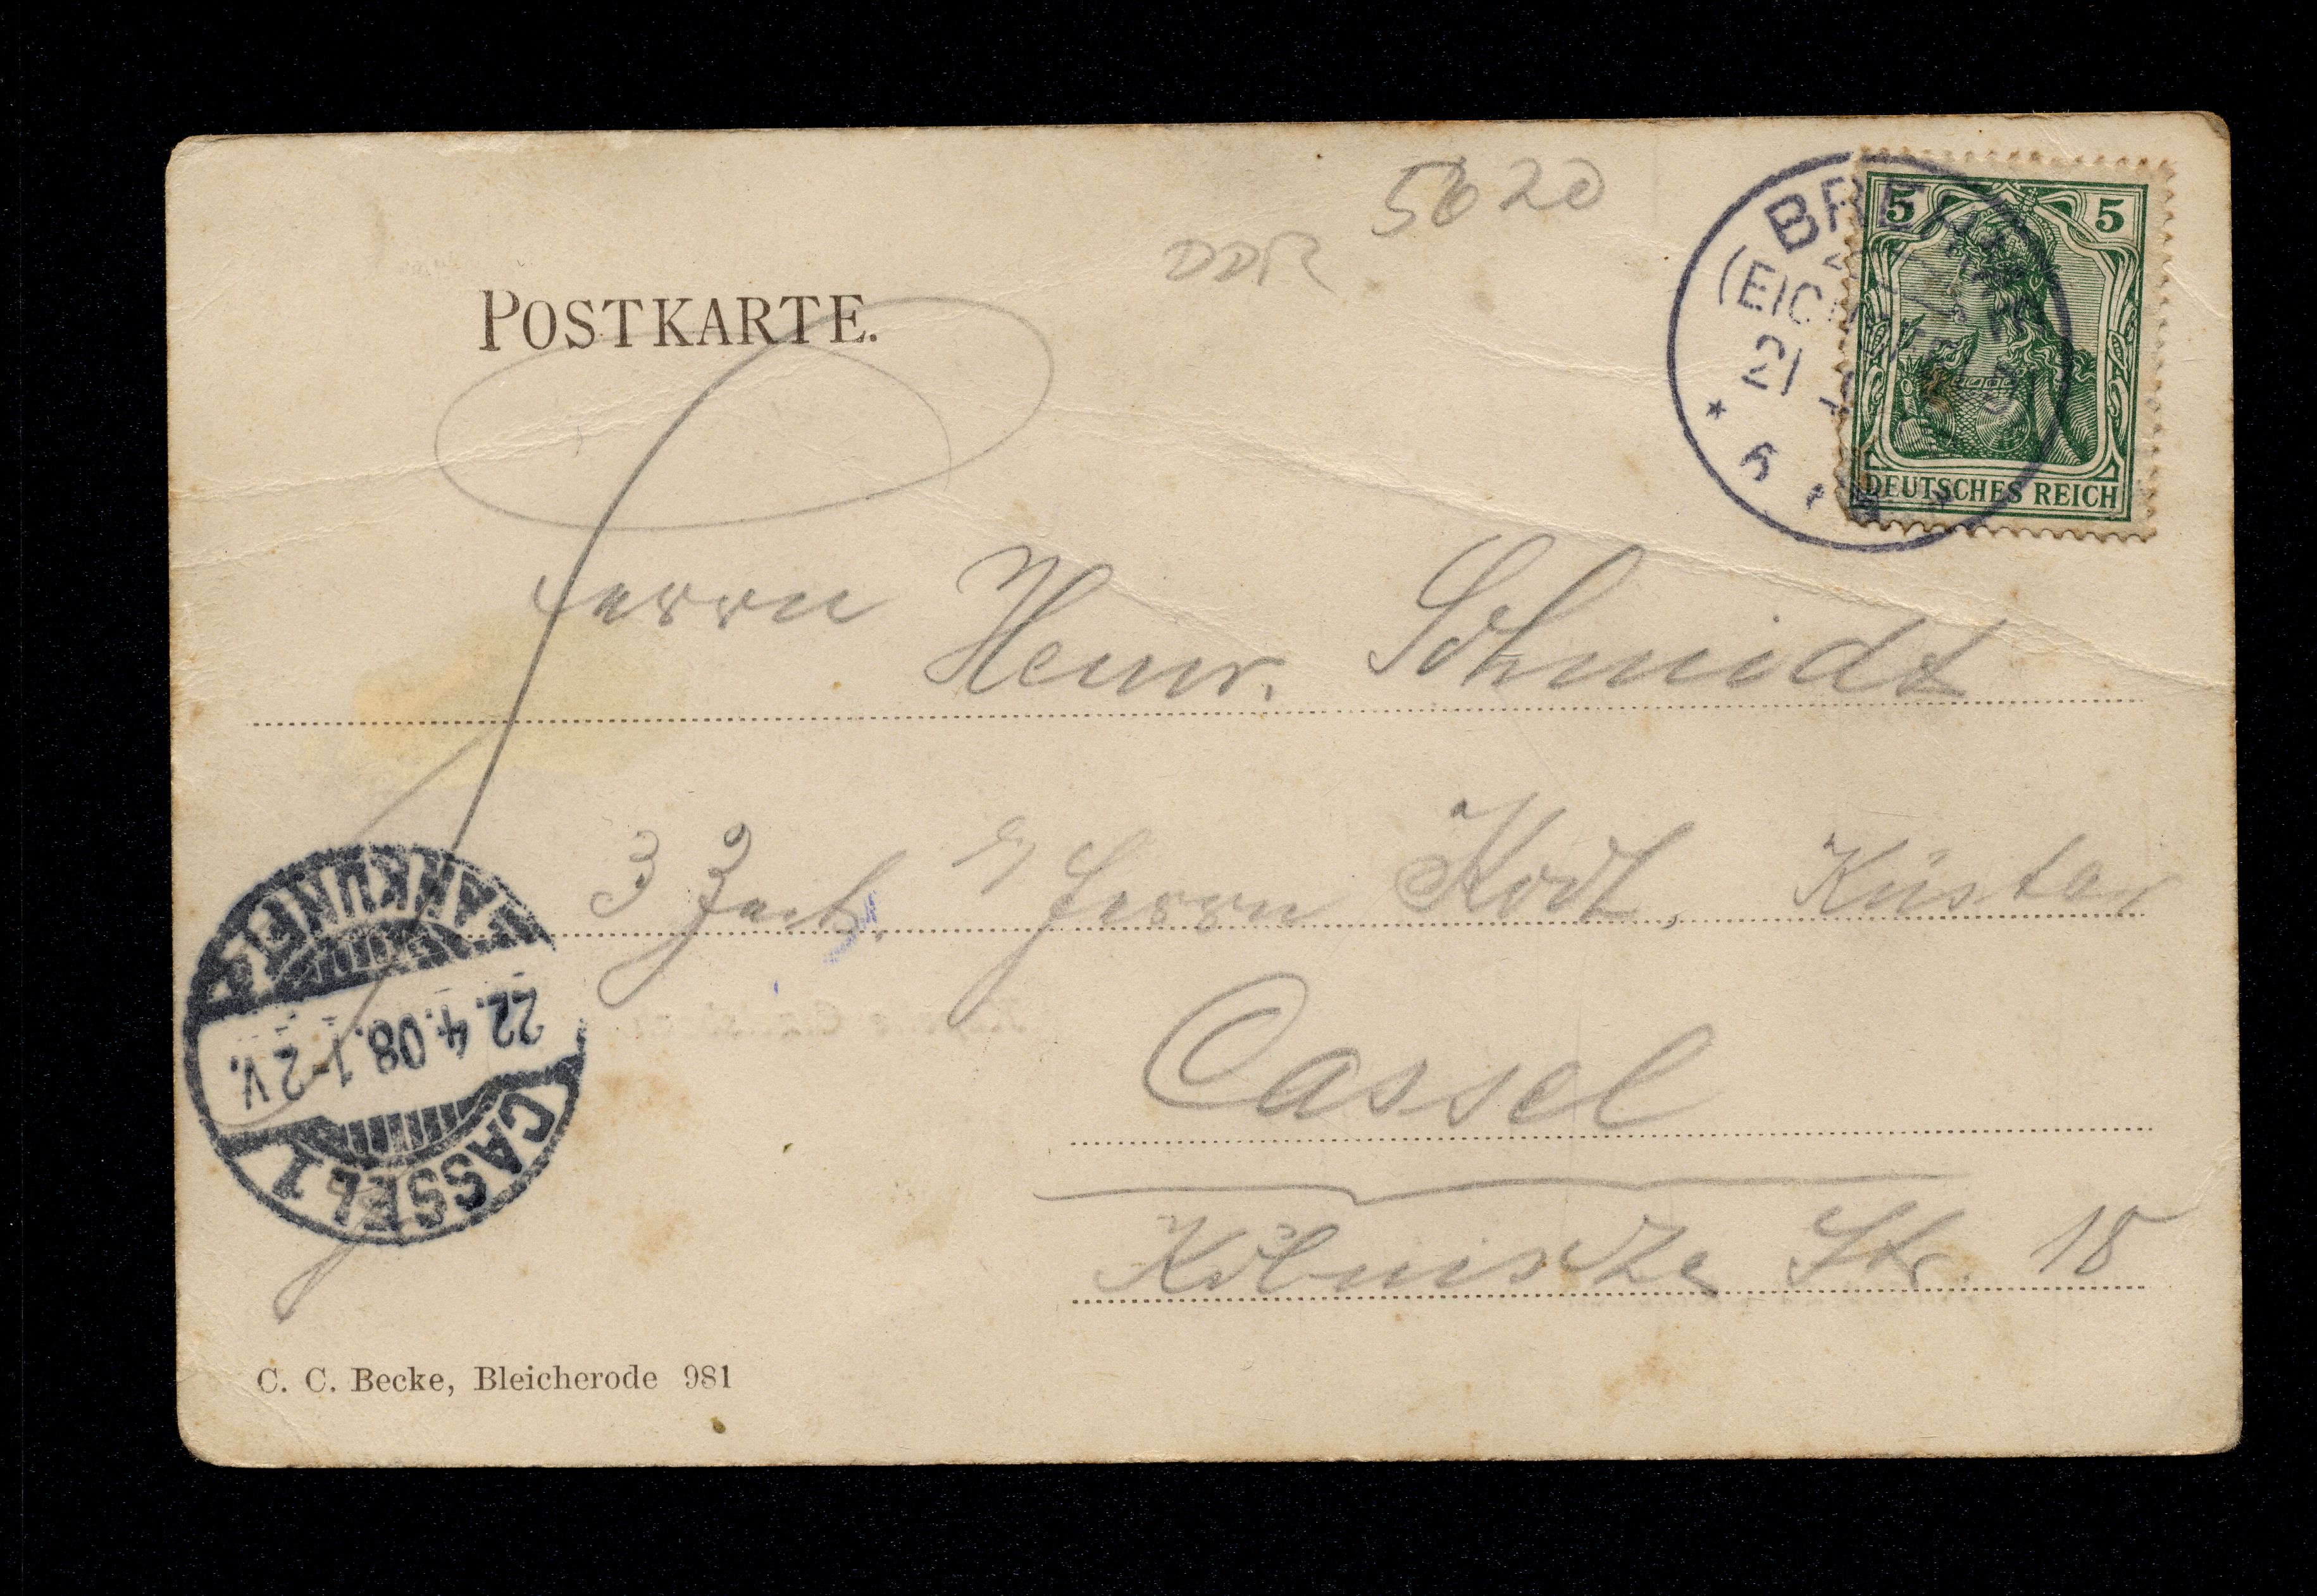 5620
DDR
POSTKARTE.
5 5
DEUTSCHES REICH
BRE
(EICH
21
Herrn Heinr. Schmidt
3 Herrn Küster
Cassel
Kölnische Str. 18
ANKUNFT
22.4.08.1-2V.
CASSEL 1
C. C. Becke, Bleicherode 981